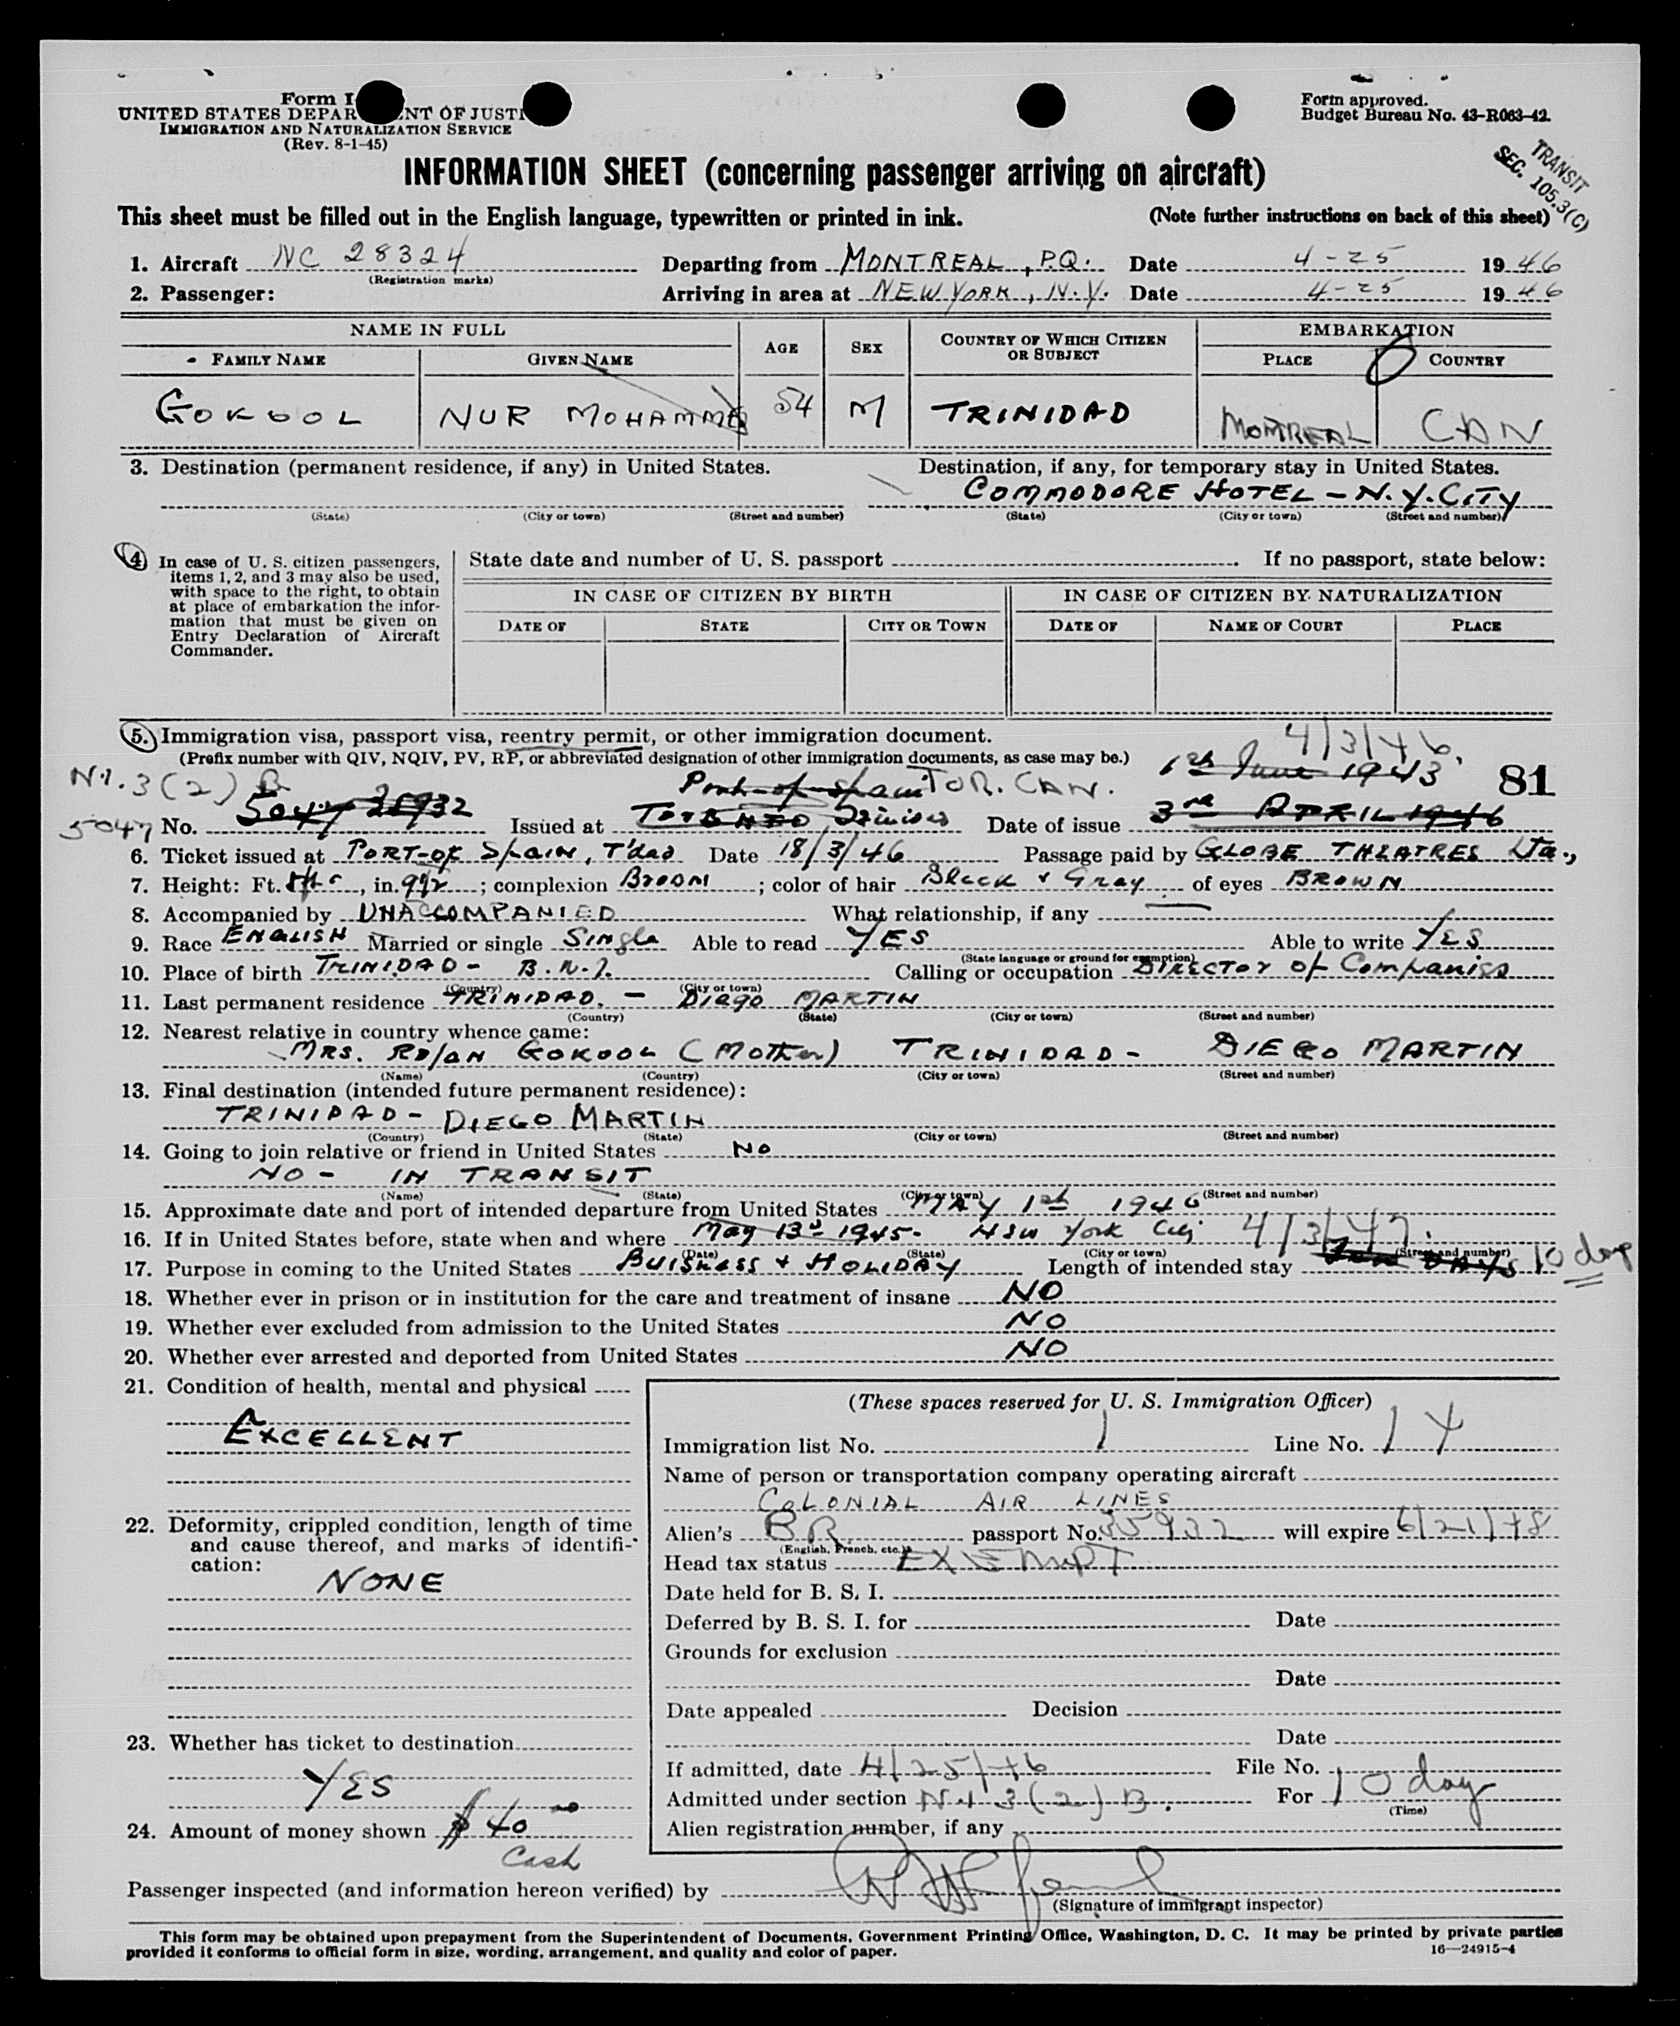 Form I
UNITED STATES DEPAR ENT OF JUSTI
IMMIGRATION AND NATURALIZATION SERVICE
(Rev. 8-1-45)
Form approved.
Budget Bureau No. 43-R063-42.
TRANSIT
SEC. 105.3(C)
INFORMATION SHEET (concerning passenger arriving on aircraft)
This sheet must be filled out in the English language, typewritten or printed in ink. (Note further instructions on back of this sheet)
1. Aircraft NC 28324 Departing from MONTREAL, P.Q. Date 4-25 1946
(Registration marks)
2. Passenger: Arriving in area at NEW YORK, N.Y. Date 4-25 1946
NAME IN FULL AGE SEX COUNTRY OF WHICH CITIZEN OR SUBJECT EMBARKATION
FAMILY NAME GIVEN NAME PLACE COUNTRY
GOKOOL NUR MOHAMMED 54 M TRINIDAD MONTREAL CAN
3. Destination (permanent residence, if any) in United States. Destination, if any, for temporary stay in United States.
COMMODORE HOTEL - N.Y. CITY
(State) (City or town) (Street and number) (State) (City or town) (Street and number)
4. In case of U. S. citizen passengers, items 1, 2, and 3 may also be used, with space to the right, to obtain at place of embarkation the information that must be given on Entry Declaration of Aircraft Commander.
State date and number of U. S. passport. If no passport, state below:
IN CASE OF CITIZEN BY BIRTH IN CASE OF CITIZEN BY NATURALIZATION
DATE OF STATE CITY OR TOWN DATE OF NAME OF COURT PLACE
5. Immigration visa, passport visa, reentry permit, or other immigration document.
(Prefix number with QIV, NQIV, PV, RP, or abbreviated designation of other immigration documents, as case may be.)
4/3/46.
N.I. 3(2) B Port-of-Spain TOR. CAN. 1st June 1943 81
5047 No. 5047 Issued at TORONTO Date of issue 3rd APRIL 1946
6. Ticket issued at PORT-OF SPAIN, T'dad Date 18/3/46 Passage paid by GLOBE THEATRES Ltd.,
7. Height: Ft. 5ft, in. 9½; complexion BROWN; color of hair Black & Gray of eyes BROWN
8. Accompanied by UNACCOMPANIED What relationship, if any
9. Race ENGLISH Married or single Single Able to read YES Able to write YES
(State language or ground for exemption)
10. Place of birth TRINIDAD - B.W.I. Calling or occupation DIRECTOR of Companies
(Country) (City or town)
11. Last permanent residence TRINIDAD. - Diego MARTIN
(Country) (State) (City or town) (Street and number)
12. Nearest relative in country whence came:
MRS. ROJAN GOKOOL (Mother) TRINIDAD - DIEGO MARTIN
(Name) (Country) (City or town) (Street and number)
13. Final destination (intended future permanent residence):
TRINIDAD - DIEGO MARTIN
(Country) (State) (City or town) (Street and number)
14. Going to join relative or friend in United States NO
NO - IN TRANSIT
(Name) (State) (City or town) (Street and number)
15. Approximate date and port of intended departure from United States MAY 1st 1946
16. If in United States before, state when and where May 13th 1945 - New York City 4/3/47.
(Date) (State) (City or town) (Street and number)
17. Purpose in coming to the United States BUISNESS & HOLIDAY Length of intended stay Ten DAYS 10 day
18. Whether ever in prison or in institution for the care and treatment of insane NO
19. Whether ever excluded from admission to the United States NO
20. Whether ever arrested and deported from United States NO
21. Condition of health, mental and physical
EXCELLENT
22. Deformity, crippled condition, length of time and cause thereof, and marks of identification:
NONE
23. Whether has ticket to destination
YES
24. Amount of money shown $40 00
Cash
(These spaces reserved for U. S. Immigration Officer)
Immigration list No. 1 Line No. 14
Name of person or transportation company operating aircraft
COLONIAL AIR LINES
Alien's BR passport No. 35932 will expire 6/21/48
(English, French, etc.)
Head tax status EXEMPT
Date held for B. S. I.
Deferred by B. S. I. for Date
Grounds for exclusion
Date
Date appealed Decision
Date
If admitted, date 4/25/46 File No.
Admitted under section N.I 3(2) B. For 10 day
(Time)
Alien registration number, if any
Passenger inspected (and information hereon verified) by
(Signature of immigrant inspector)
This form may be obtained upon prepayment from the Superintendent of Documents, Government Printing Office, Washington, D. C. It may be printed by private parties
provided it conforms to official form in size, wording, arrangement, and quality and color of paper. 16—24915-4